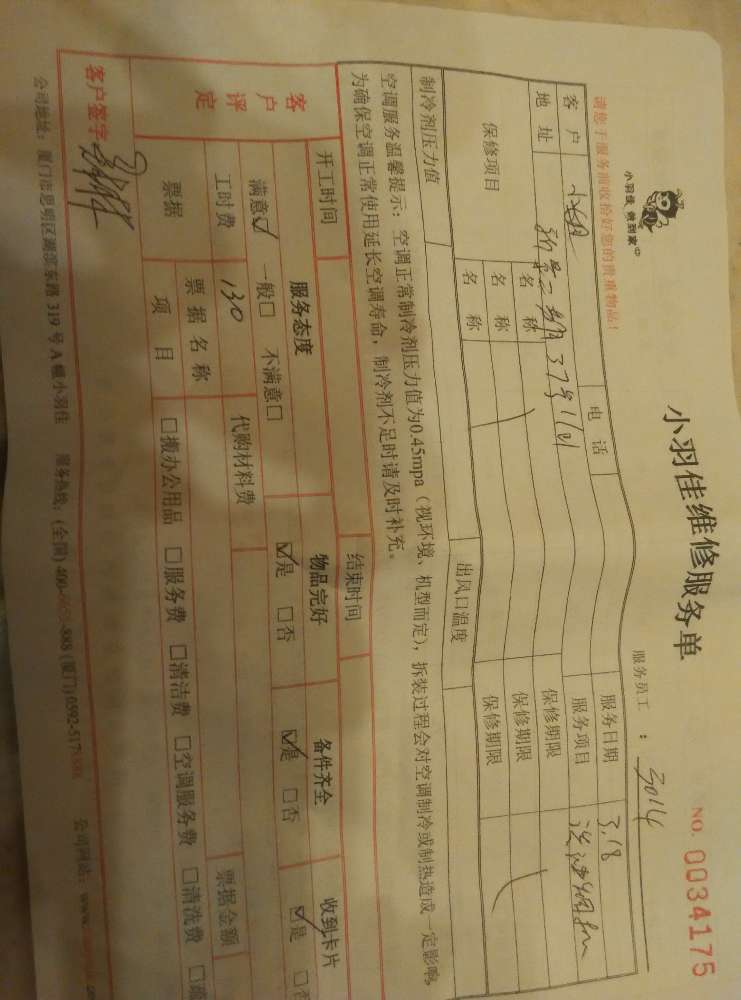 小羽佳 做到家
小羽佳维修服务单
NO. 0034175
请您于服务前收拾好您的贵重物品!
服务员工：3014
客户
电话
服务日期 3.18
地址 37号1101
服务项目
保修项目
名称
保修期限
名称
保修期限
名称
保修期限
制冷剂压力值
出风口温度
空调服务温馨提示：空调正常制冷剂压力值为0.45mpa（视环境、机型而定），拆装过程会对空调制冷或制热造成一定影响，
为确保空调正常使用延长空调寿命，制冷剂不足时请及时补充。
开工时间
结束时间
客户评定
服务态度
物品完好
备件齐全
收到卡片
满意☑ 一般□ 不满意□
☑是 □否
☑是 □否
☑是 □否
工时费 130
代购材料费
票据
票据名称
票据金额
项目
□搬办公用品 □服务费 □清洁费 □空调服务费 □清洗费
客户签字
公司地址：厦门市思明区湖滨东路319号A幢小羽佳 服务热线：(全国)400- -888 (厦门)0592-517 公司网站：www.